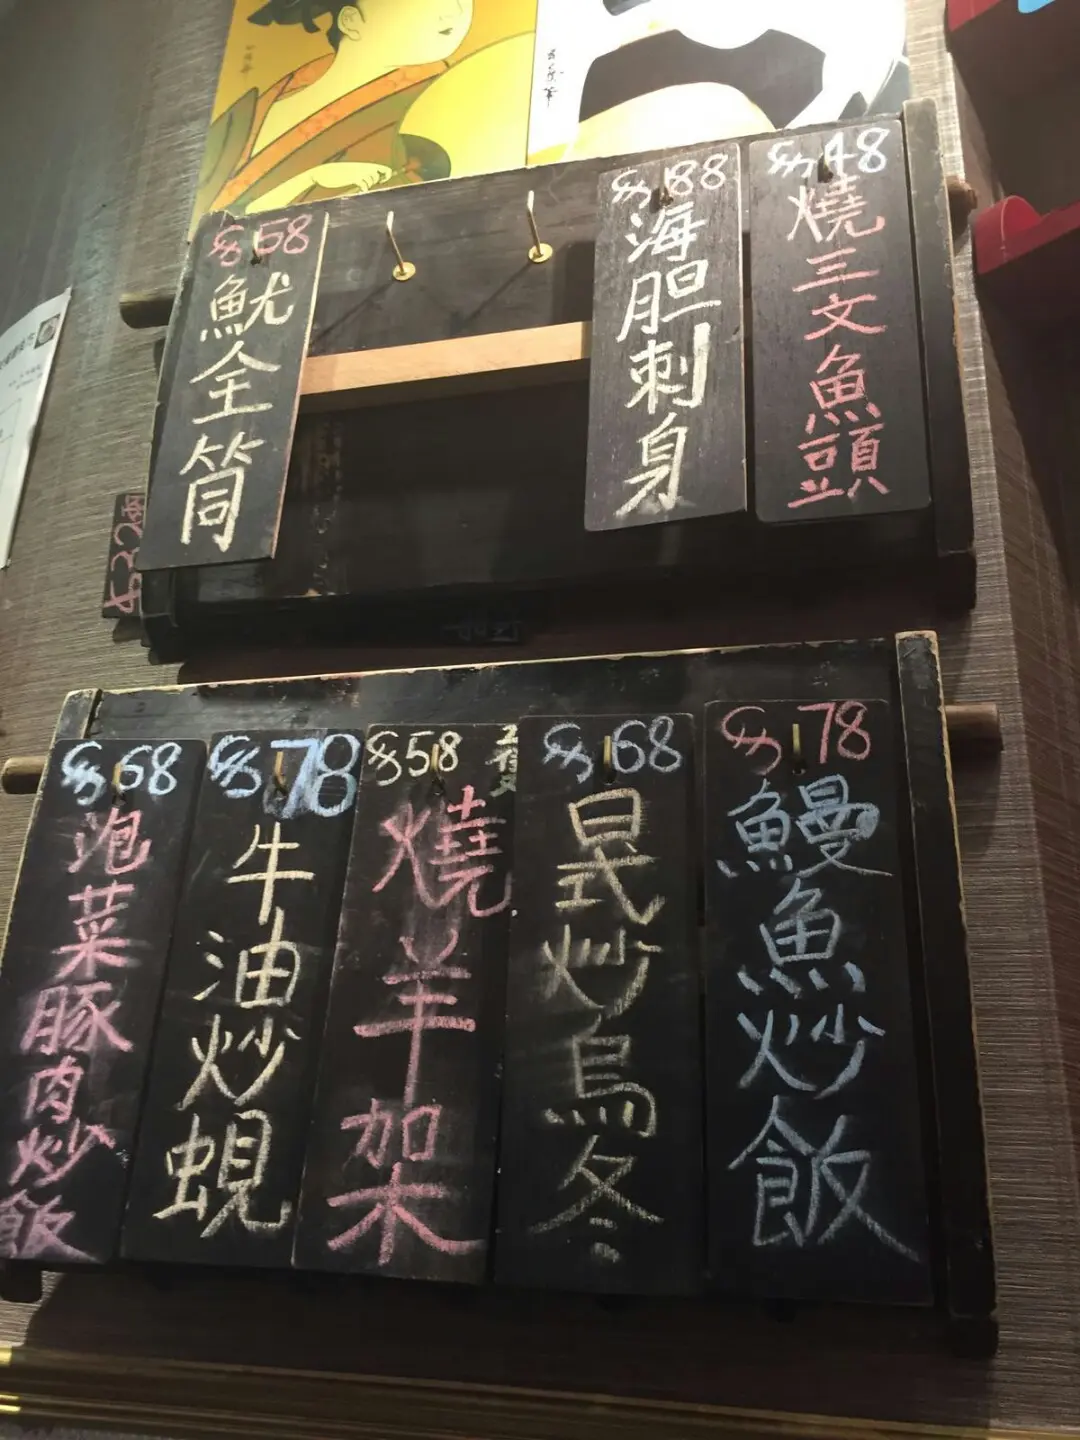 $58
魷全筒
$188
海胆刺身
$48
燒三文魚頭
$68
泡菜豚肉炒飯
$78
牛油炒蜆
$58
燒羊架
$68
晃炒烏冬
$78
鰻魚炒飯